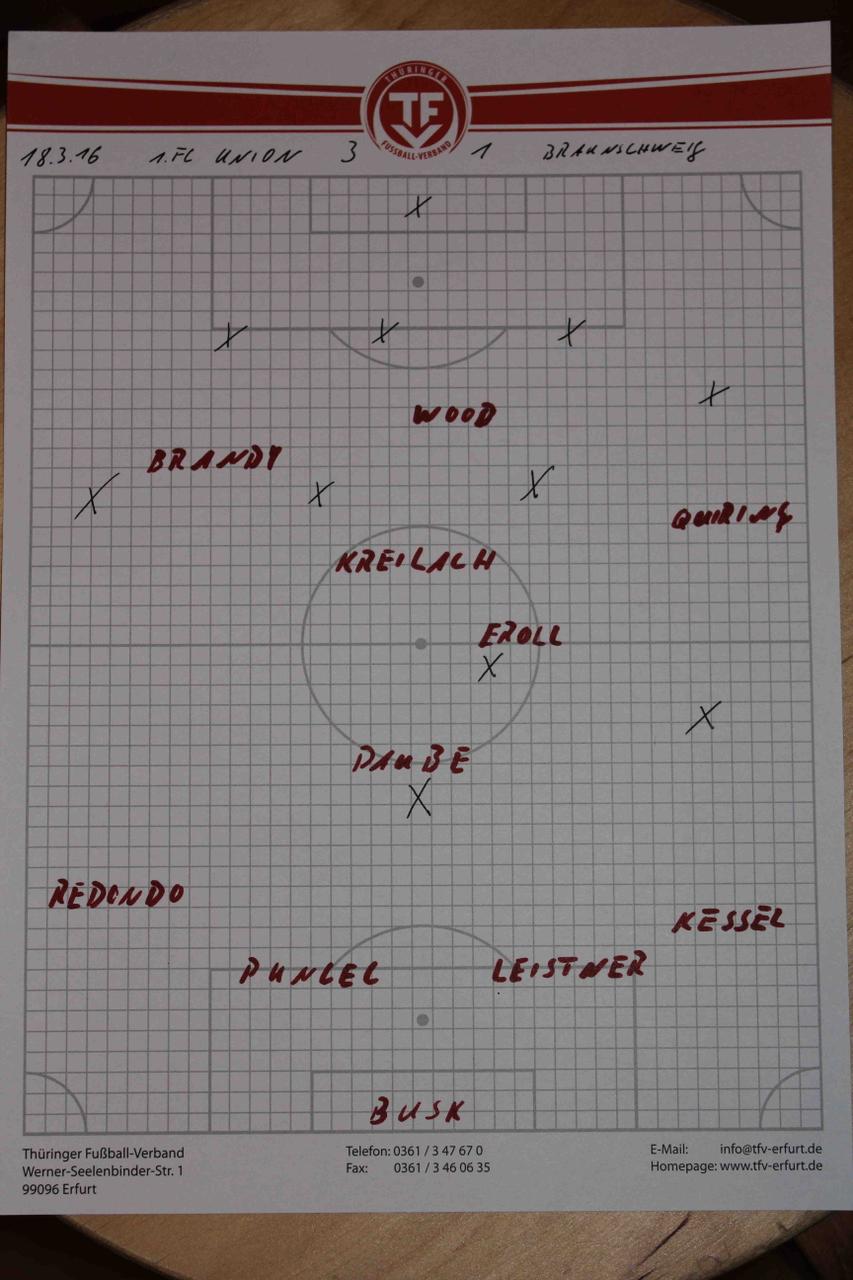 THÜRINGER
TF
FUSSBALL-VERBAND
18.3.16 1.FC UNION 3 1 BRAUNSCHWEIG
X
X X X
X
WOOD
BRANDY
X X X
QUIRING
KREILACH
EROLL
X
X
DAUBE
X
REDONDO
KESSEL
PUNCEL LEISTNER
BUSK
Thüringer Fußball-Verband
Werner-Seelenbinder-Str. 1
99096 Erfurt
Telefon: 0361 / 3 47 67 0
Fax: 0361 / 3 46 06 35
E-Mail: info@tfv-erfurt.de
Homepage: www.tfv-erfurt.de